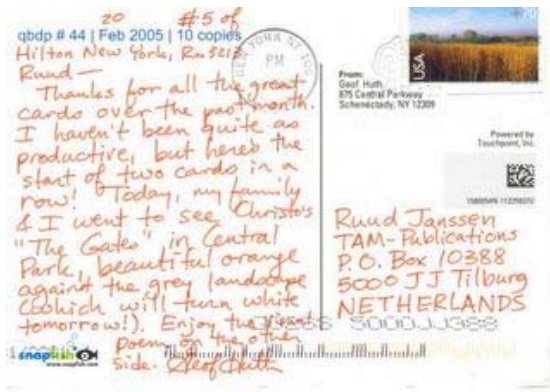 20 #5 of
qbdp # 44 | Feb 2005 | 10 copies
Hilton New York, Rm 3213
Ruud—
Thanks for all the great
cards over the past month.
I haven't been quite as
productive, but here's the
start of two cards in a
row! Today, my family
& I went to see Christo's
"The Gates" in Central
Park, beautiful orange
against the grey landscape
(which will turn white
tomorrow!). Enjoy the
poem on the other
side. Geof Huth
snapfish
www.snapfish.com
NEW YORK NY 100
PM
USA
70
From:
Geof Huth
875 Central Parkway
Schenectady, NY 12309
Powered by
Touchpoint, Inc.
Ruud Janssen
TAM-Publications
P.O. Box 10388
5000 JJ Tilburg
NETHERLANDS